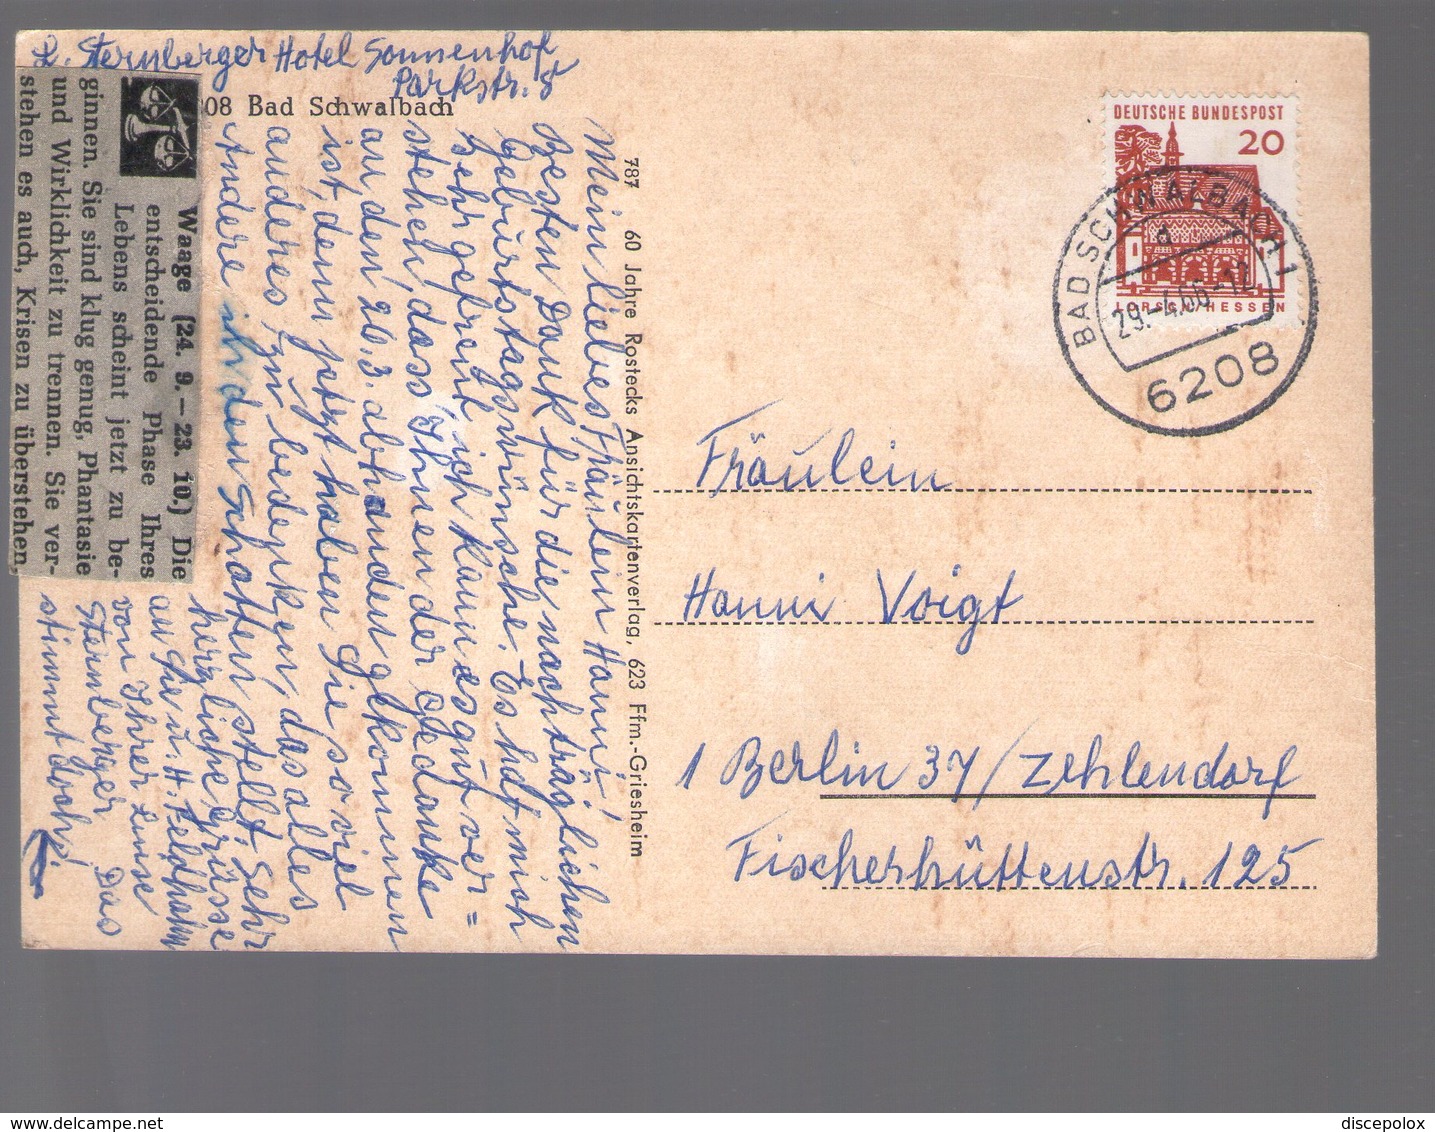 L. Sternberger Hotel Sonnenhof
Parkstr. 8
08 Bad Schwalbach
Waage (24. 9.–23. 10.) Die
entscheidende Phase Ihres
Lebens scheint jetzt zu be-
ginnen. Sie sind klug genug, Phantasie
und Wirklichkeit zu trennen. Sie ver-
stehen es auch, Krisen zu überstehen.
Mein liebes Fräulein Hanni!
Besten Dank für die nachträglichen
Geburtstagswünsche. Es hat mich
sehr gefreut ich kann es gut ver=
stehen, dass Ihnen der Gedanke
an den 20.3. abhanden gekommen
ist, denn jetzt haben Sie so viel
anderes zu bedenken, das alles
Andere in den Schatten stellt. Sehr
herzliche Grüsse
an Sie u. H. Feldhahn
von Ihrer Luise
Sternberger Das
stimmt doch!
787 60 Jahre Rostecks Ansichtskartenverlag, 623 Ffm.-Griesheim
DEUTSCHE BUNDESPOST
20
LORSCH/HESSEN
BAD SCHWALBACH 1
d
29.-4.66-12
6208
Fräulein
Hanni Voigt
1 Berlin 37/Zehlendorf
Fischerhüttenstr. 125
www.delcampe.net
discepolox